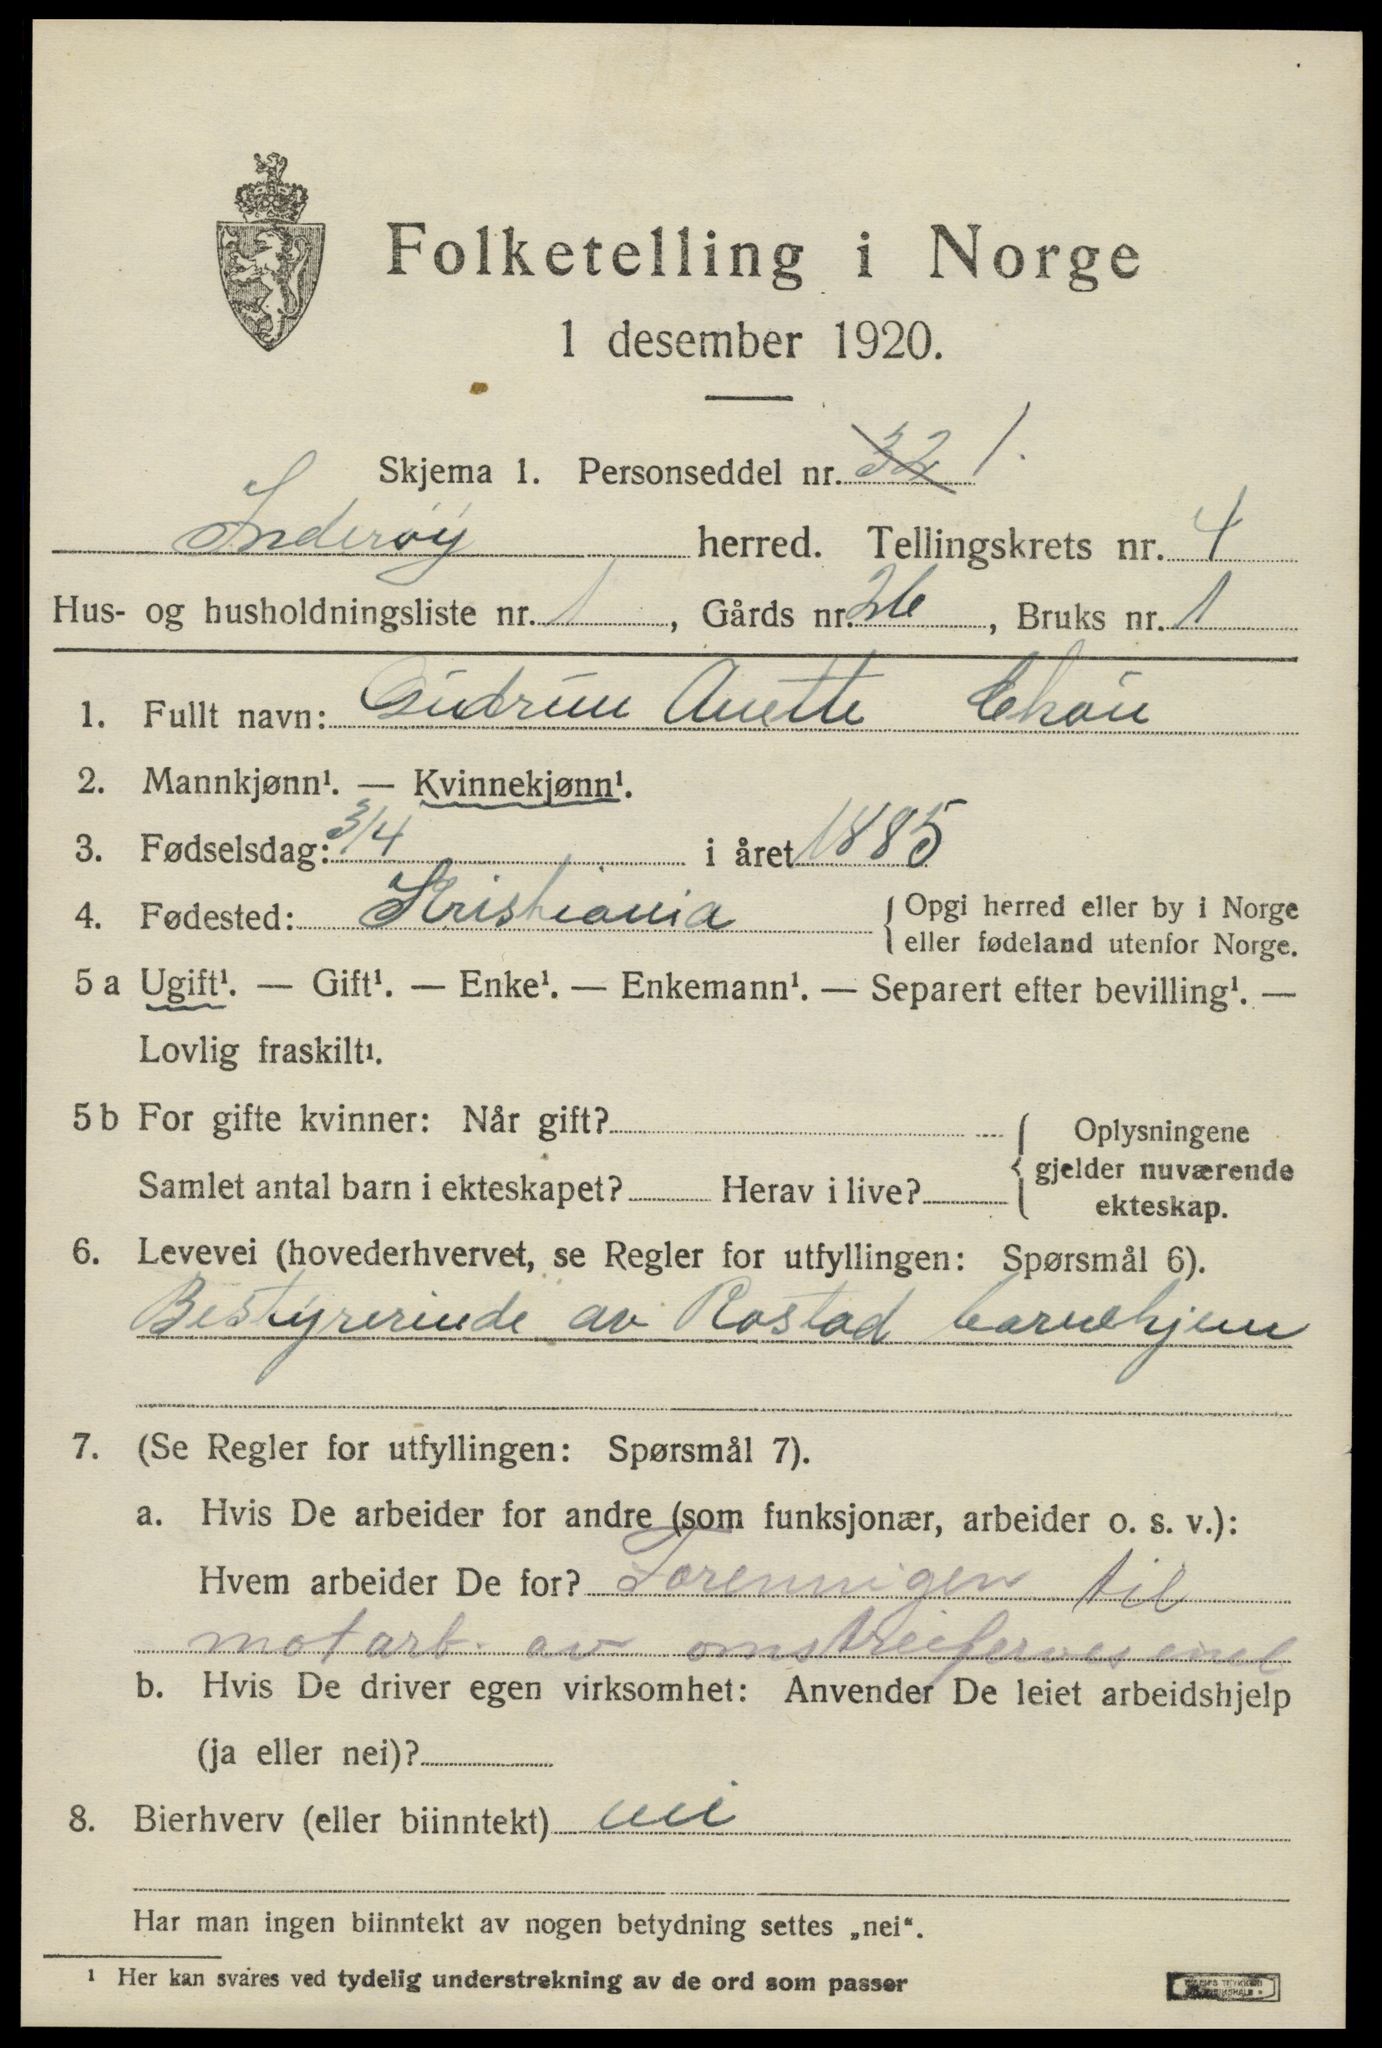 Folketelling i Norge
1 desember 1920.
Skjema 1. Personseddel nr. 32 1.
Inderöy herred. Tellingskrets nr. 4
Hus- og husholdningsliste nr. 1, Gårds nr. 26, Bruks nr. 1
1. Fullt navn: Gudrun Anette
2. Mannkjønn¹. — Kvinnekjønn¹.
3. Fødselsdag: 3/4 i året 1885
4. Fødested: Kristiania { Opgi herred eller by i Norge
eller fødeland utenfor Norge.
5 a Ugift¹. — Gift¹. — Enke¹. — Enkemann¹. — Separert efter bevilling¹. —
Lovlig fraskilt¹.
5 b For gifte kvinner: Når gift?
Samlet antal barn i ekteskapet? Herav i live?
{ Oplysningene
gjelder nuværende
ekteskap.
6. Levevei (hovederhvervet, se Regler for utfyllingen: Spørsmål 6).
Bestyrerinde av Rostad barnehjem
7. (Se Regler for utfyllingen: Spørsmål 7).
a. Hvis De arbeider for andre (som funksjonær, arbeider o. s. v.):
Hvem arbeider De for? Forenningen til
motarb. av omstreifervesenet
b. Hvis De driver egen virksomhet: Anvender De leiet arbeidshjelp
(ja eller nei)?
8. Bierhverv (eller biinntekt) nei
Har man ingen biinntekt av nogen betydning settes „nei“.
¹ Her kan svares ved tydelig understrekning av de ord som passer